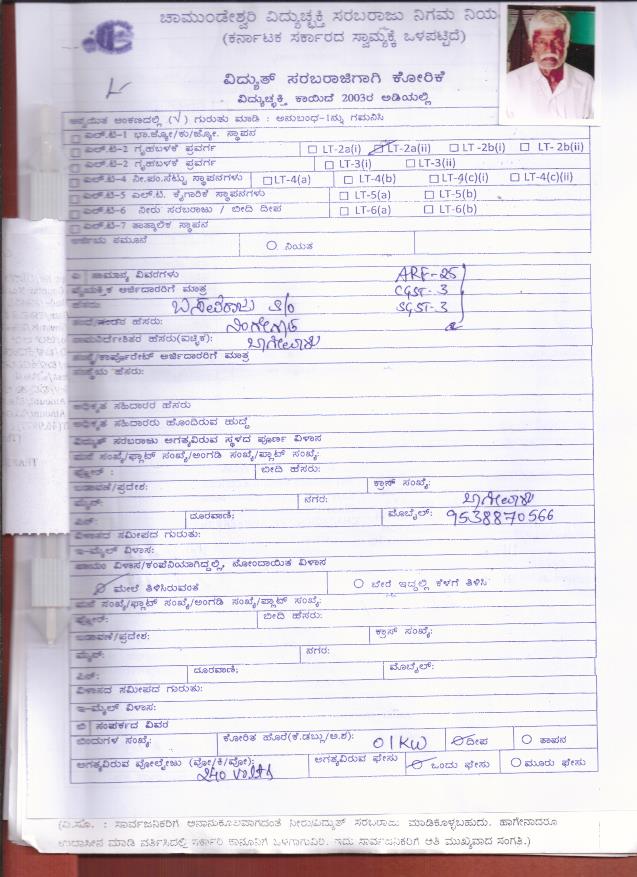 ಚಾಮುಂಡೇಶ್ವರಿ ವಿದ್ಯುಚ್ಛಕ್ತಿ ಸರಬರಾಜು ನಿಗಮ ನಿಯ
(ಕರ್ನಾಟಕ ಸರ್ಕಾರದ ಸ್ವಾಮ್ಯಕ್ಕೆ ಒಳಪಟ್ಟಿದೆ)
ವಿದ್ಯುತ್ ಸರಬರಾಜಿಗಾಗಿ ಕೋರಿಕೆ
ವಿದ್ಯುಚ್ಛಕ್ತಿ ಕಾಯಿದೆ 2003ರ ಅಡಿಯಲ್ಲಿ
ಅನ್ವಯಿತ ಅಂಕಣದಲ್ಲಿ (√) ಗುರುತು ಮಾಡಿ : ಅನುಬಂಧ-1ನ್ನು ಗಮನಿಸಿ
ಎಲ್.ಟಿ-1 ಭಾ.ಜ್ಯೋ/ಕು/ಜ್ಯೋ. ಸ್ಥಾಪನ
ಎಲ್.ಟಿ-2 ಗೃಹಬಳಕೆ ಪ್ರವರ್ಗ LT-2a(i) LT-2a(ii) LT-2b(i) LT-2b(ii)
ಎಲ್.ಟಿ-2 ಗೃಹಬಳಕೆ ಪ್ರವರ್ಗ LT-3(i) LT-3(ii)
ಎಲ್.ಟಿ-4 ನೀ.ಪಂ.ಸೆಟ್ಟು ಸ್ಥಾಪನಗಳು LT-4(a) LT-4(b) LT-4(c)(i) LT-4(c)(ii)
ಎಲ್.ಟಿ-5 ಎಲ್.ಟಿ. ಕೈಗಾರಿಕೆ ಸ್ಥಾಪನಗಳು LT-5(a) LT-5(b)
ಎಲ್.ಟಿ-6 ನೀರು ಸರಬರಾಜು / ಬೀದಿ ದೀಪ LT-6(a) LT-6(b)
ಎಲ್.ಟಿ-7 ತಾತ್ಕಾಲಿಕ ಸ್ಥಾಪನ
ಅರ್ಜಿಯ ನಮೂನೆ ನಿಯತ
ಎ ಸಾಮಾನ್ಯ ವಿವರಗಳು ARF-25
ವೈಯಕ್ತಿಕ ಅರ್ಜಿದಾರರಿಗೆ ಮಾತ್ರ CGST-3
ಹೆಸರು: ಬಸವರಾಜು S/o SGST-3
ಹೆಸರು:
ನಾಮನಿರ್ದೇಶಿತರ ಹೆಸರು(ಐಚ್ಛಿಕ):
ಸಂಸ್ಥೆ/ಕಾರ್ಪೊರೇಟ್ ಅರ್ಜಿದಾರರಿಗೆ ಮಾತ್ರ
ಸಂಸ್ಥೆಯ ಹೆಸರು:
ಅಧಿಕೃತ ಸಹಿದಾರರ ಹೆಸರು
ಅಧಿಕೃತ ಸಹಿದಾರರು ಹೊಂದಿರುವ ಹುದ್ದೆ
ವಿದ್ಯುತ್ ಸರಬರಾಜು ಅಗತ್ಯವಿರುವ ಸ್ಥಳದ ಪೂರ್ಣ ವಿಳಾಸ
ಮನೆ ಸಂಖ್ಯೆ/ಫ್ಲಾಟ್ ಸಂಖ್ಯೆ/ಅಂಗಡಿ ಸಂಖ್ಯೆ/ಪ್ಲಾಟ್ ಸಂಖ್ಯೆ:
ಫ್ಲೋರ್ : ಬೀದಿ ಹೆಸರು:
ಬಡಾವಣೆ/ಪ್ರದೇಶ: ಕ್ರಾಸ್ ಸಂಖ್ಯೆ:
ಮೈನ್: ನಗರ:
ಪಿನ್: ದೂರವಾಣಿ: ಮೊಬೈಲ್: 9538870566
ವಿಳಾಸದ ಸಮೀಪದ ಗುರುತು:
ಇ-ಮೈಲ್ ವಿಳಾಸ:
ಖಾಯಂ ವಿಳಾಸ/ಕಂಪೆನಿಯಾಗಿದ್ದಲ್ಲಿ, ನೋಂದಾಯಿತ ವಿಳಾಸ
ಮೇಲೆ ತಿಳಿಸಿರುವಂತೆ ಬೇರೆ ಇದ್ದಲ್ಲಿ ಕೆಳಗೆ ತಿಳಿಸಿ
ಮನೆ ಸಂಖ್ಯೆ/ಫ್ಲಾಟ್ ಸಂಖ್ಯೆ/ಅಂಗಡಿ ಸಂಖ್ಯೆ/ಪ್ಲಾಟ್ ಸಂಖ್ಯೆ:
ಫ್ಲೋರ್: ಬೀದಿ ಹೆಸರು:
ಬಡಾವಣೆ/ಪ್ರದೇಶ: ಕ್ರಾಸ್ ಸಂಖ್ಯೆ:
ಮೈನ್: ನಗರ:
ಪಿನ್: ದೂರವಾಣಿ: ಮೊಬೈಲ್:
ವಿಳಾಸದ ಸಮೀಪದ ಗುರುತು:
ಇ-ಮೈಲ್ ವಿಳಾಸ:
ಬಿ ಸಂಪರ್ಕದ ವಿವರ
ಬಿಂದುಗಳ ಸಂಖ್ಯೆ: ಕೋರಿತ ಹೊರೆ(ಕೆ.ಡಬ್ಲು/ಅ.ಶ): 01KW ದೀಪ ತಾಪನ
ಅಗತ್ಯವಿರುವ ವೋಲ್ಟೇಜು (ವೋ/ಕಿ/ವೋ): 240 Volts ಅಗತ್ಯವಿರುವ ಫೇಸು ಒಂದು ಫೇಸು ಮೂರು ಫೇಸು
(ವಿ.ಸೂ. : ಸಾರ್ವಜನಿಕರಿಗೆ ಅನಾನುಕೂಲವಾಗದಂತೆ ನೀರು/ವಿದ್ಯುತ್ ಸರಬರಾಜು ಮಾಡಿಕೊಳ್ಳಬಹುದು. ಹಾಗೇನಾದರೂ
ಉದಾಸೀನ ಮಾಡಿ ವರ್ತಿಸಿದಲ್ಲಿ ಸರ್ಕಾರಿ ಕಾನೂನಿಗೆ ಒಳಗಾಗುವಿರಿ. ಇದು ಸಾರ್ವಜನಿಕರಿಗೆ ಅತಿ ಮುಖ್ಯವಾದ ಸಂಗತಿ.)